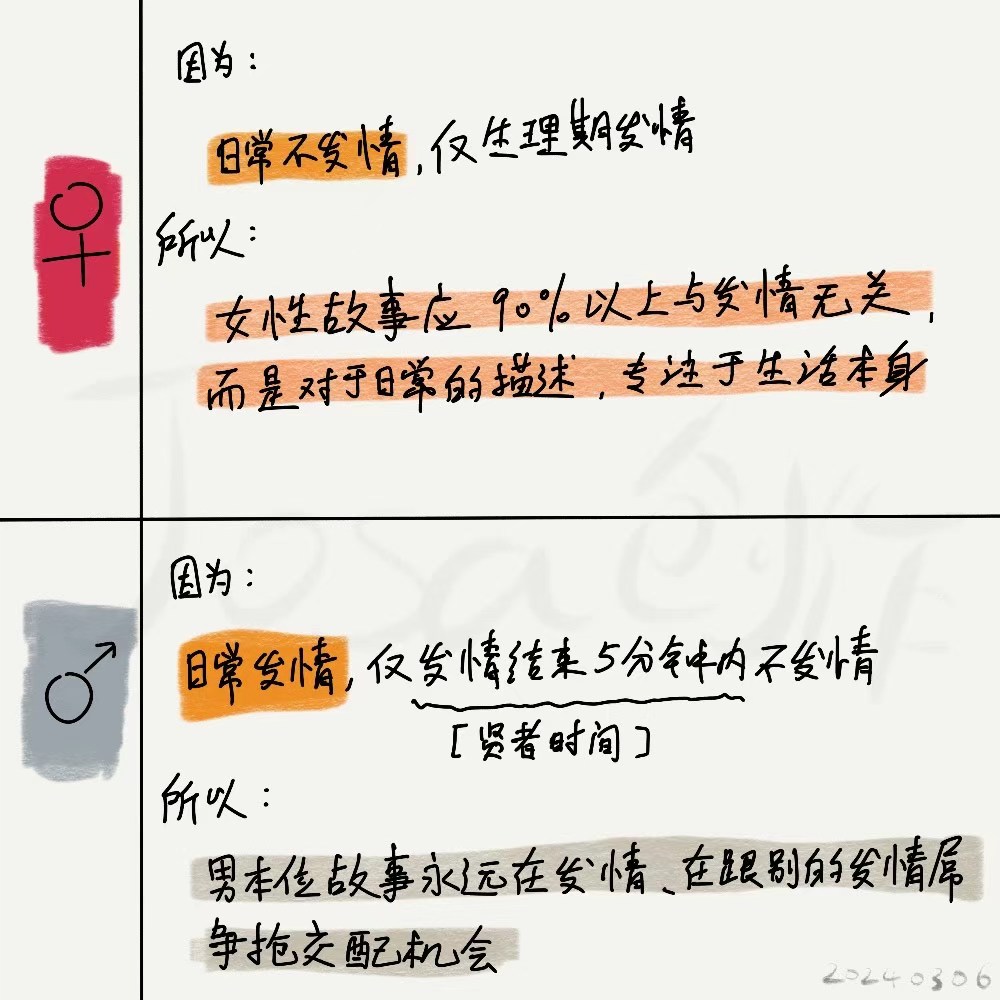 因为：
日常不发情，仅生理期发情
♀
所以：
女性故事应90%以上与发情无关，
而是对于日常的描述，专注于生活本身
因为：
日常发情，仅发情结束5分钟内不发情
[贤者时间]
♂
所以：
男本位故事永远在发情、在跟别的发情屌
争抢交配机会
20240306